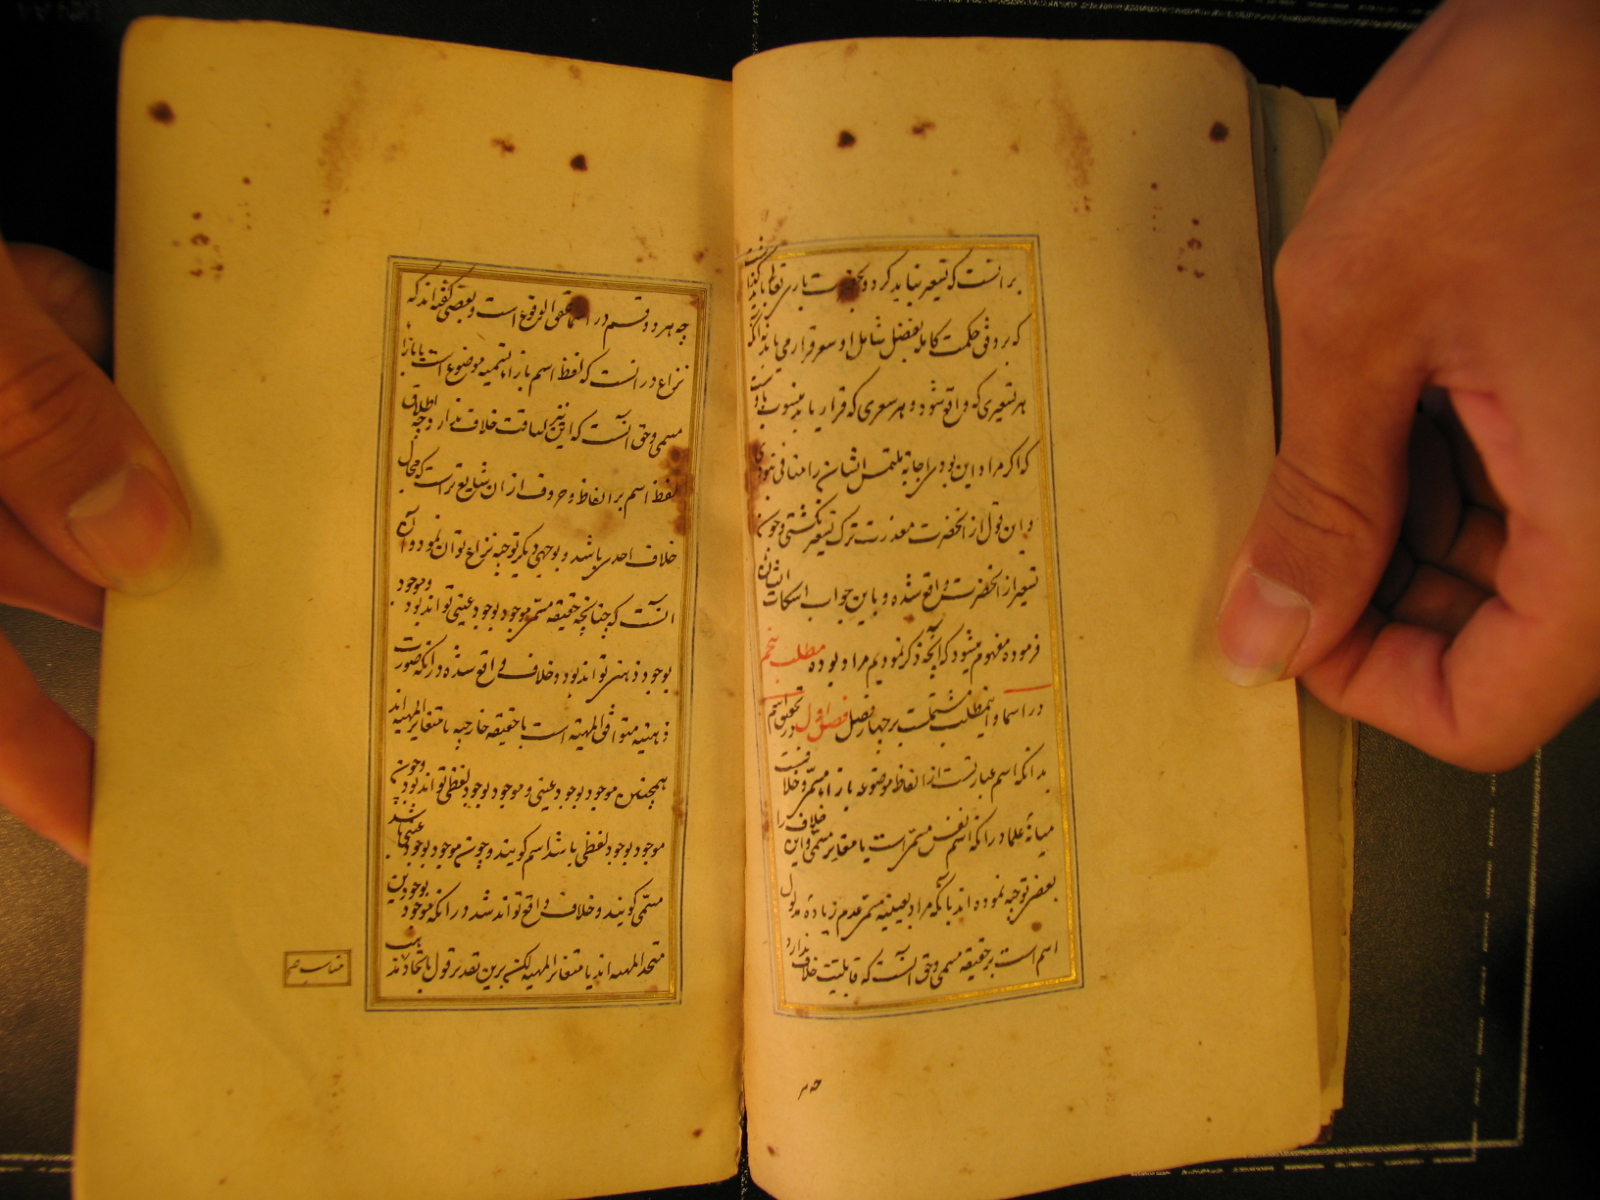 بر آنست که تسعیر نباید کرد و بحضرت باری تعالی باید گذاشت
که بر وفق حکمت کامله بفضل شامل او سعر قرار می یابد نه آنکه
هر تسعیری که واقع شود و هر سعری که قرار یابد منسوب باوست
که اگر مراد این بودی اجابة ملتمس ایشان را منافی نبودی
و این قول از آنحضرت معذرت ترک تسعیر نگشتی و چون
تسعیر از آنحضرت واقع نشده و باین جواب اسکات ایشان
فرموده مفهوم میشود که آنچه ذکر نمودیم مراد بوده مطلب پنجم
در اسما و این مطلب مشتملست بر چهار فصل فصل اول در تحقیق اسم
بدانکه اسم عبارتست از الفاظ موضوعه بازاء مسمی و خلافست
میانهٔ علما در آنکه اسم نفس مسمی است یا مغایر مسمی و این خلاف را
بعضی توجیه نموده اند بآنکه مراد بعینیه مسمی عدم زیادهٔ مدلول
اسم است بر حقیقه مسمی و حق آنست که قابلیت خلاف ندارد
چه
چه هر دو قسم در اسما محقق الوقوع است و بعضی گفته اند که
نزاع در آنست که لفظ اسم بازاء تسمیه موضوع است یا بازاء
مسمی و حق آنست که این نیز لیاقت خلاف ندارد چه اطلاق
لفظ اسم بر الفاظ و حروف از آن شایع تر است که محال
خلاف احدی باشد و بوجهی دیگر توجیه نزاع توان نمود و آن
آنست که چنانچه حقیقه مسمی موجود بوجود عینی تواند بود و موجود
بوجود ذهنی تواند بود و خلاف واقع شده در آنکه صورت
ذهنیه متوافق المهیة است با حقیقه خارجیه یا متغایر المهیه اند
همچنین موجود بوجود عینی و موجود بوجود لفظی تواند بود و چون
موجود بوجود لفظی باشد اسم گویند و چون موجود بوجود عینی باشد
مسمی گویند و خلاف واقع تواند شد در آنکه موجود بوجودین
متحد المهیه اند یا متغایر المهیه لکن برین تقدیر قول باتحاد